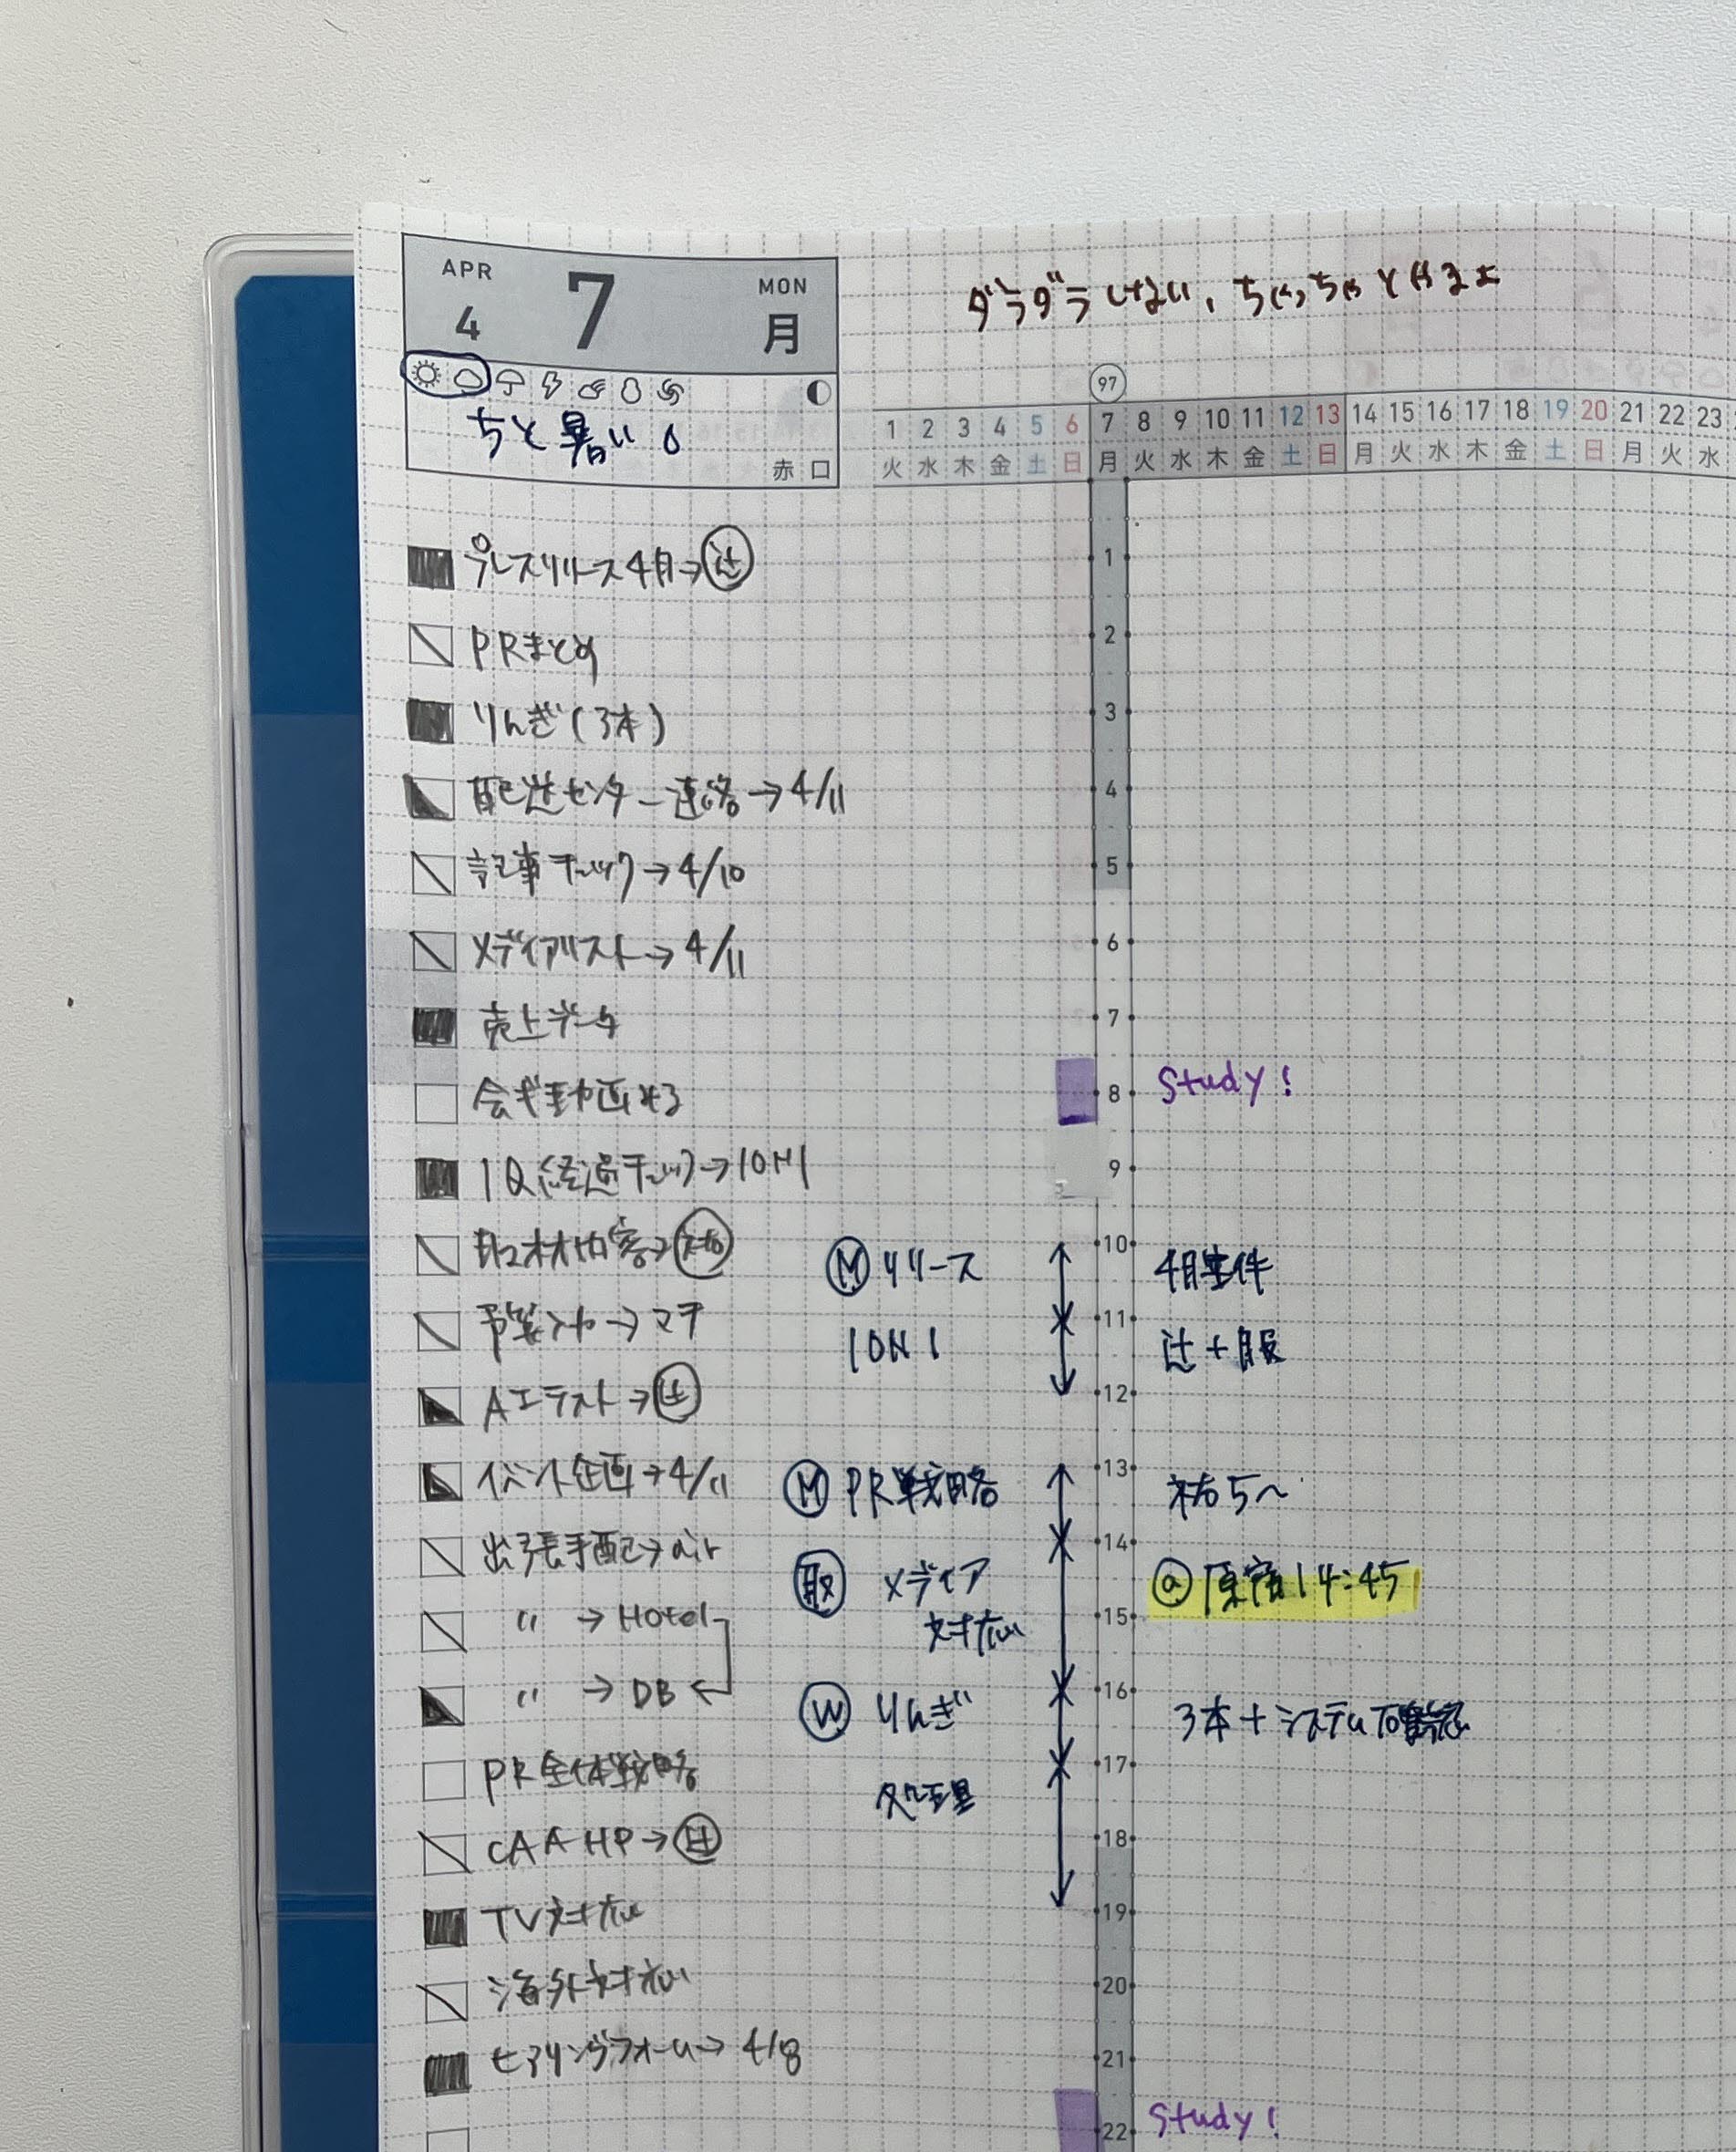 APR
4
7
MON
月
ちと暑い
赤口
ダラダラしない、ちゃっちゃとやるよ
97
1 2 3 4 5 6 7 8 9 10 11 12 13 14 15 16 17 18 19 20 21 22 23
火 水 木 金 土 日 月 火 水 木 金 土 日 月 火 水 木 金 土 日 月 火 水
プレスリリース4月→辻
PRまとめ
りんぎ(3本)
配送センター連絡→4/11
記事チェック→4/10
メディアリスト→4/11
売上データ
会ギ動画×3
1Q経過チェック→1ON1
取材内容→祐
予算入力→マチ
AIテスト→辻
イベント企画→4/11
出張手配→air
〃 →Hotel
〃 →DB
PR全体戦略
CAA HP→
TV対応
海外対応
ヒアリングフォーム→4/8
1
2
3
4
5
6
7
8 Study!
9
Ⓜ リリース 10 4月案件
1ON1 11 辻+服
12
Ⓜ PR戦略 13 祐5〜
取 メディア 14 ⓐ原宿14:45
対応 15
Ⓦ りんぎ 16 3本+システム確認
処理 17
18
19
20
21
22 Study!